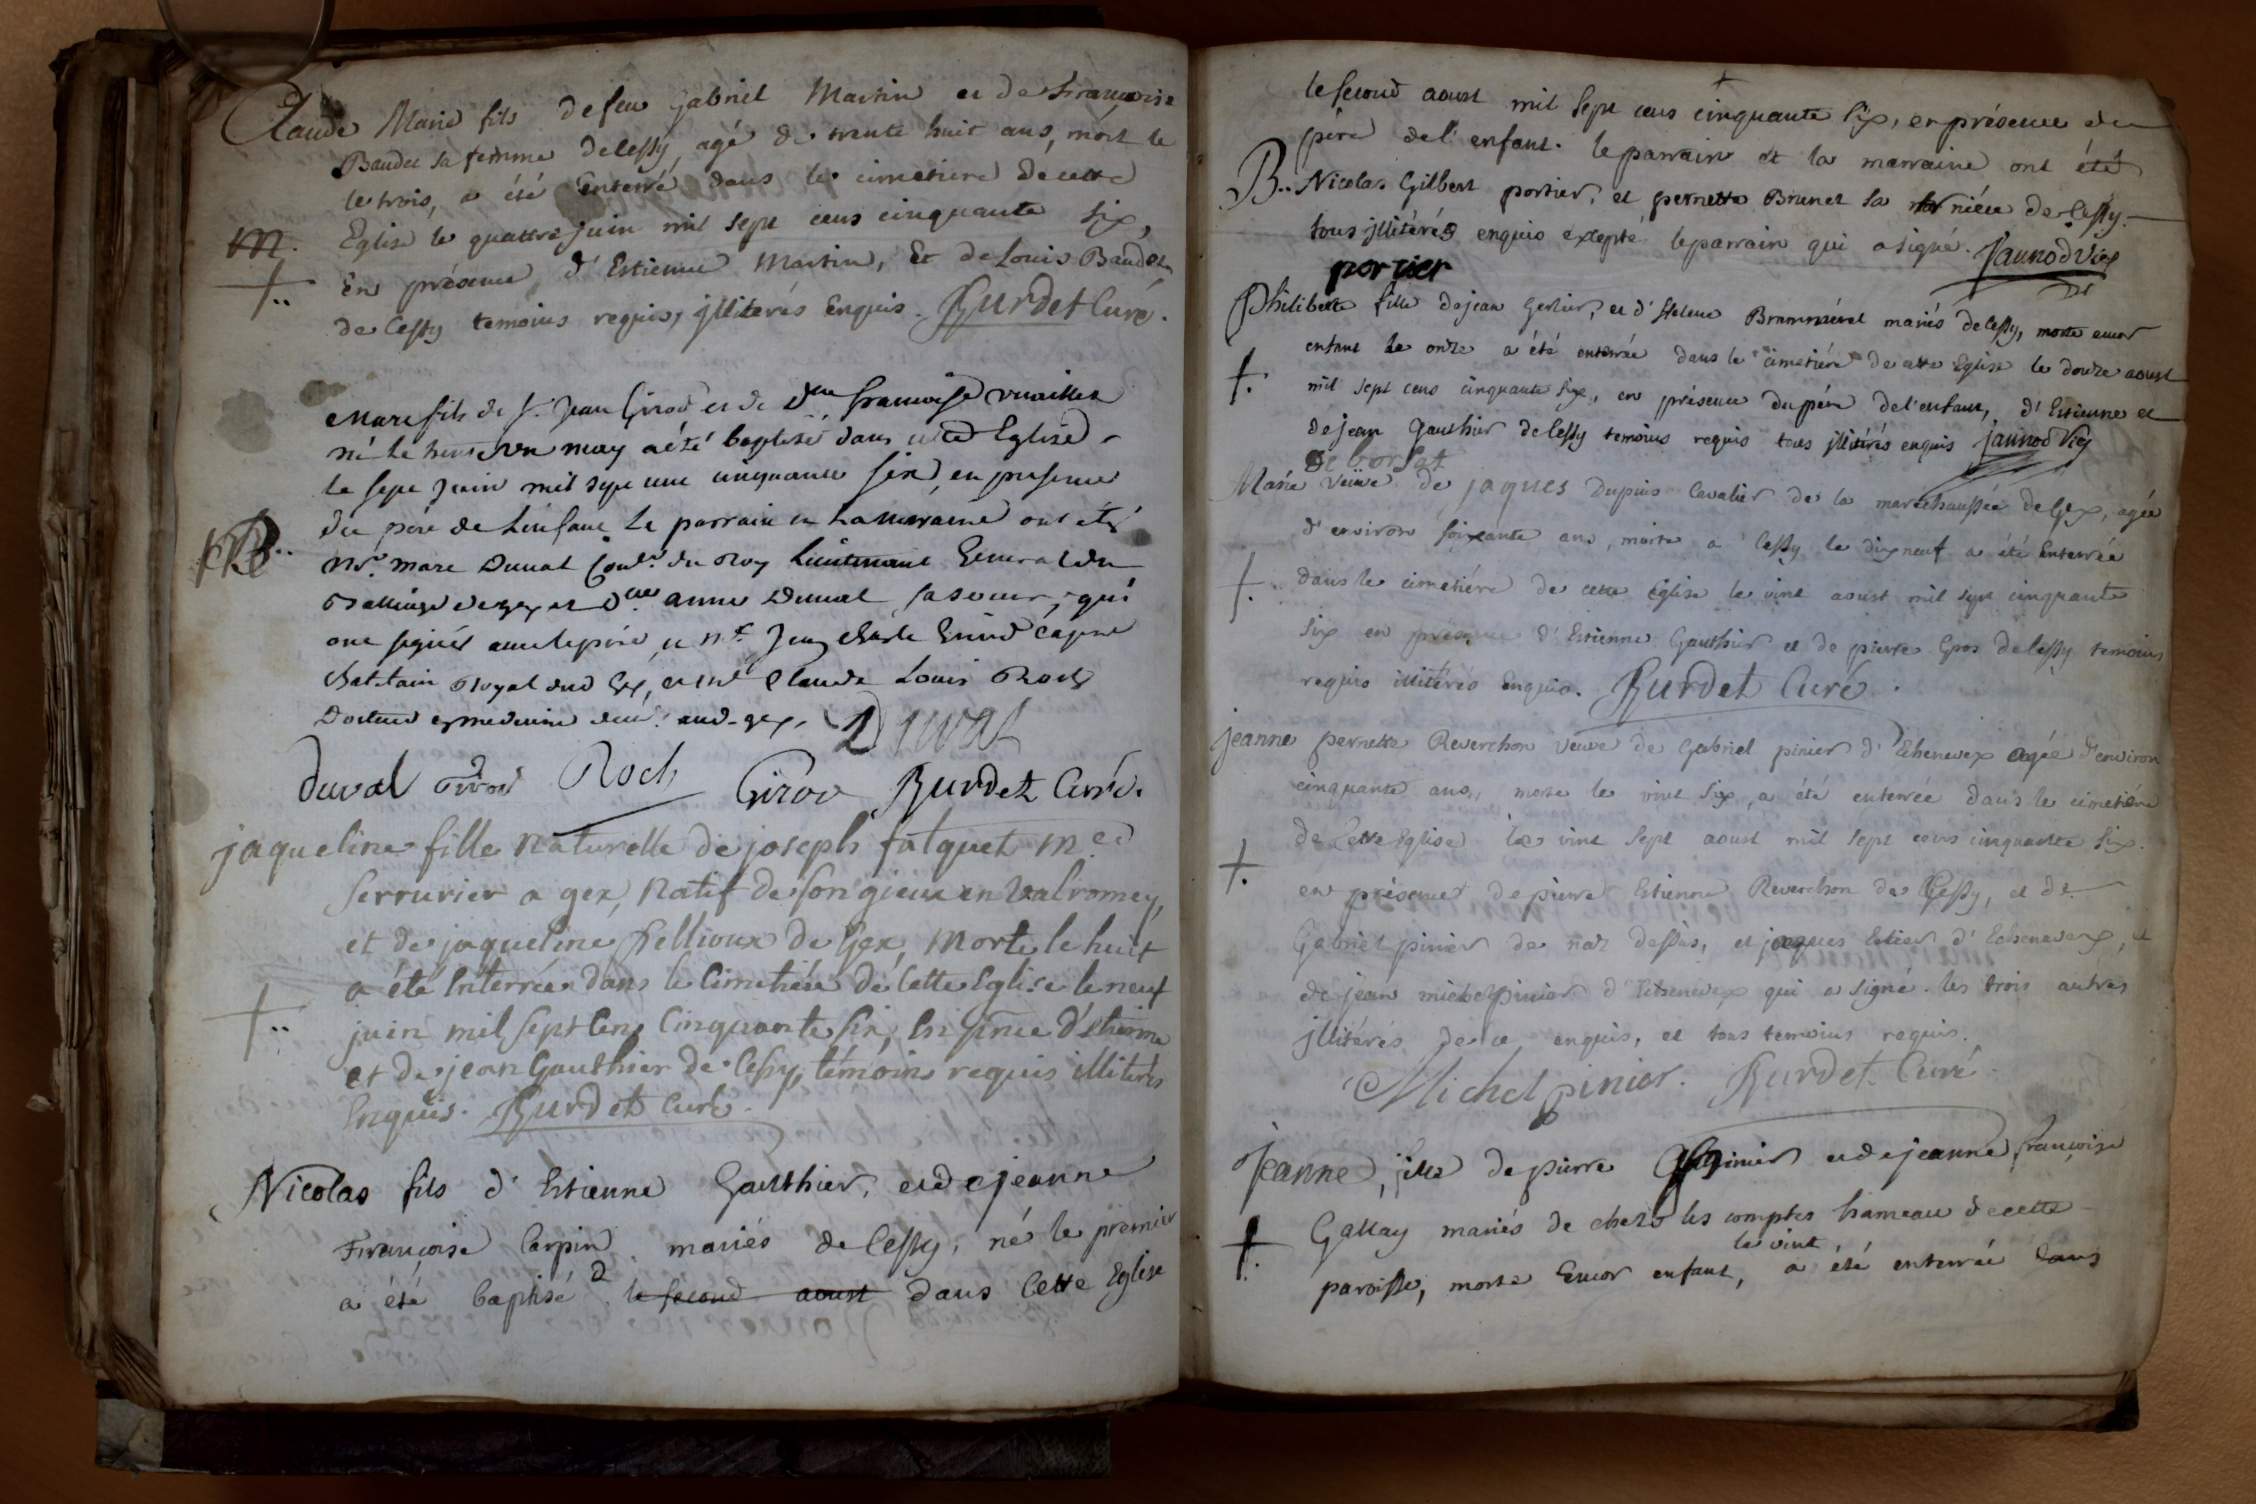 Claude Marie fils de feu Gabriel Martin et de Françoise
Baudet sa femme de Cessy, agé de trente huit ans, mort le
le trois, a été Enterré dans le cimetiere de cette
M. Eglise le quattre juin mil sept cens cinquante six,
En présence, d'Estienne Martin, Et de Louis Baudet
de Cessy temoins requis, jllitérés Enquis. Burdet Curé.
Marc fils de Sr. Jean Girod et de Dlle françoise
né le trente un may a été baptisé dans cette Eglise
le sept Juin mil sept cent cinquante six, en presence
B.. du père de Lenfant Le parrain et La Maraine ont été
Mr. Marc Duval Conlr. du Roy Lieutenant General du
Balliage de gex et Dlle anne Duval sa soeur, qui
ont signés avec le père, et Mr. Jean Girod
chatelain Royal dud Gex, et Mr Claude Louis Roch
Docteur en medecine aud. gex. Duval
duval Girod Roch Girod Burdet Curé.
jaqueline fille naturelle de joseph falquet me
serrurier a gex, natif de songieux en valromey,
et de jaqueline Pellioux de Gex, Morte le huit
a été Enterrée dans le Cimetiére de Cette Eglise le neuf
juin mil sept Cens Cinquante six, En pnce d'Etienne
et de jean Gauthier de Cessy, témoins requis illiterés
Enquis. Burdet Curé.
Nicolas fils d'Estienne Gauthier, et de jeanne
Françoise Carpin mariés de Cessy, né le premier
a été baptisé le second aoust dans Cette Eglise
le second aoust mil sept cens cinquante six, en présence du
père de l'enfant. le parrain et la marraine ont été
B.. Nicolas Gilbert portier, et pernette Brunet sa niéce de Cessy.
tous jllitérés enquis excepté le parrain qui a signé. Jaunod Vice
portier
Philiberte fille de jean Gerlier, et d'Helene mariés de Cessy, morte encor
enfant le onze a été enterrée dans le cimetiére de cette Eglise le douze aoust
mil sept cens cinquante six, en présence du pére de l'enfant, d'Estienne et
de jean Gauthier de Cessy temoins requis tous jllitérés enquis jaunod Vice
de borsat
Marie veuve de jaques Dupuis Cavalier de la maréchaussée de Gex, agée
d'environ soixante ans, morte a Cessy le dix neuf a été Enterrée
dans le cimetiére de cette Eglise le vint aoust mil sept cinquante
six en présence d'Estienne Gauthier et de pierre Gros de Cessy temoins
requis illitérés Enquis. Burdet Curé.
jeanne pernette Reverchon veuve de Gabriel pinier d'Echenevex agée d'environ
cinquante ans, morte le vint six, a été enterrée dans le cimetiére
de Cette Eglise le vint sept aoust mil sept cens cinquante six.
en présence de pierre Estienne Reverchon de Cessy, et de
Gabriel pinier de naz dessus, et jaques d'Echenevex, et
de jean michel pinier d'Echenevex qui a signé. les trois autres
jllitérés de ce enquis, et tous temoins requis.
Michel pinier. Burdet Curé.
Jeanne, fille de pierre pinier et de jeanne françoise
Gallay mariés de chez les comptes hameau de cette
le vint
paroisse, morte Encor enfant, a été enterrée dans